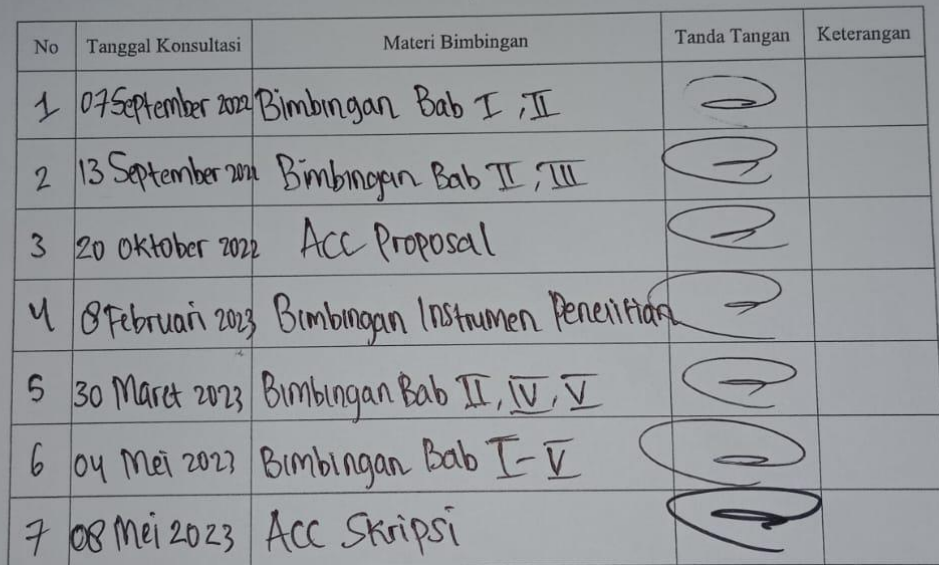 No Tanggal Konsultasi Materi Bimbingan Tanda Tangan Keterangan
1 07 September 2022 Bimbingan Bab I, II
2 13 September 2022 Bimbingan Bab II, III
3 20 Oktober 2022 Acc Proposal
4 8 Februari 2023 Bimbingan Instrumen Penelitian
5 30 Maret 2023 Bimbingan Bab II, IV, V
6 04 Mei 2023 Bimbingan Bab I - V
7 08 Mei 2023 Acc Skripsi